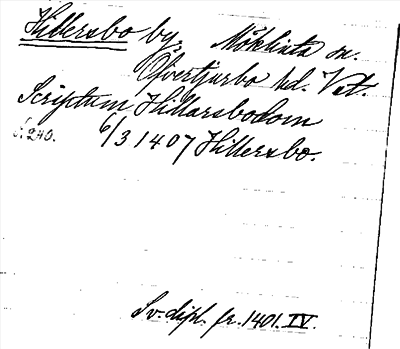 Hillersbo by, Möklinta sn.
Öfvertjurbo hd. Vstl.
Scriptum Hillarsbodom
s. 240. 6/3 1407 Hillersbo.
Sv. dipl. fr. 1401. IV.